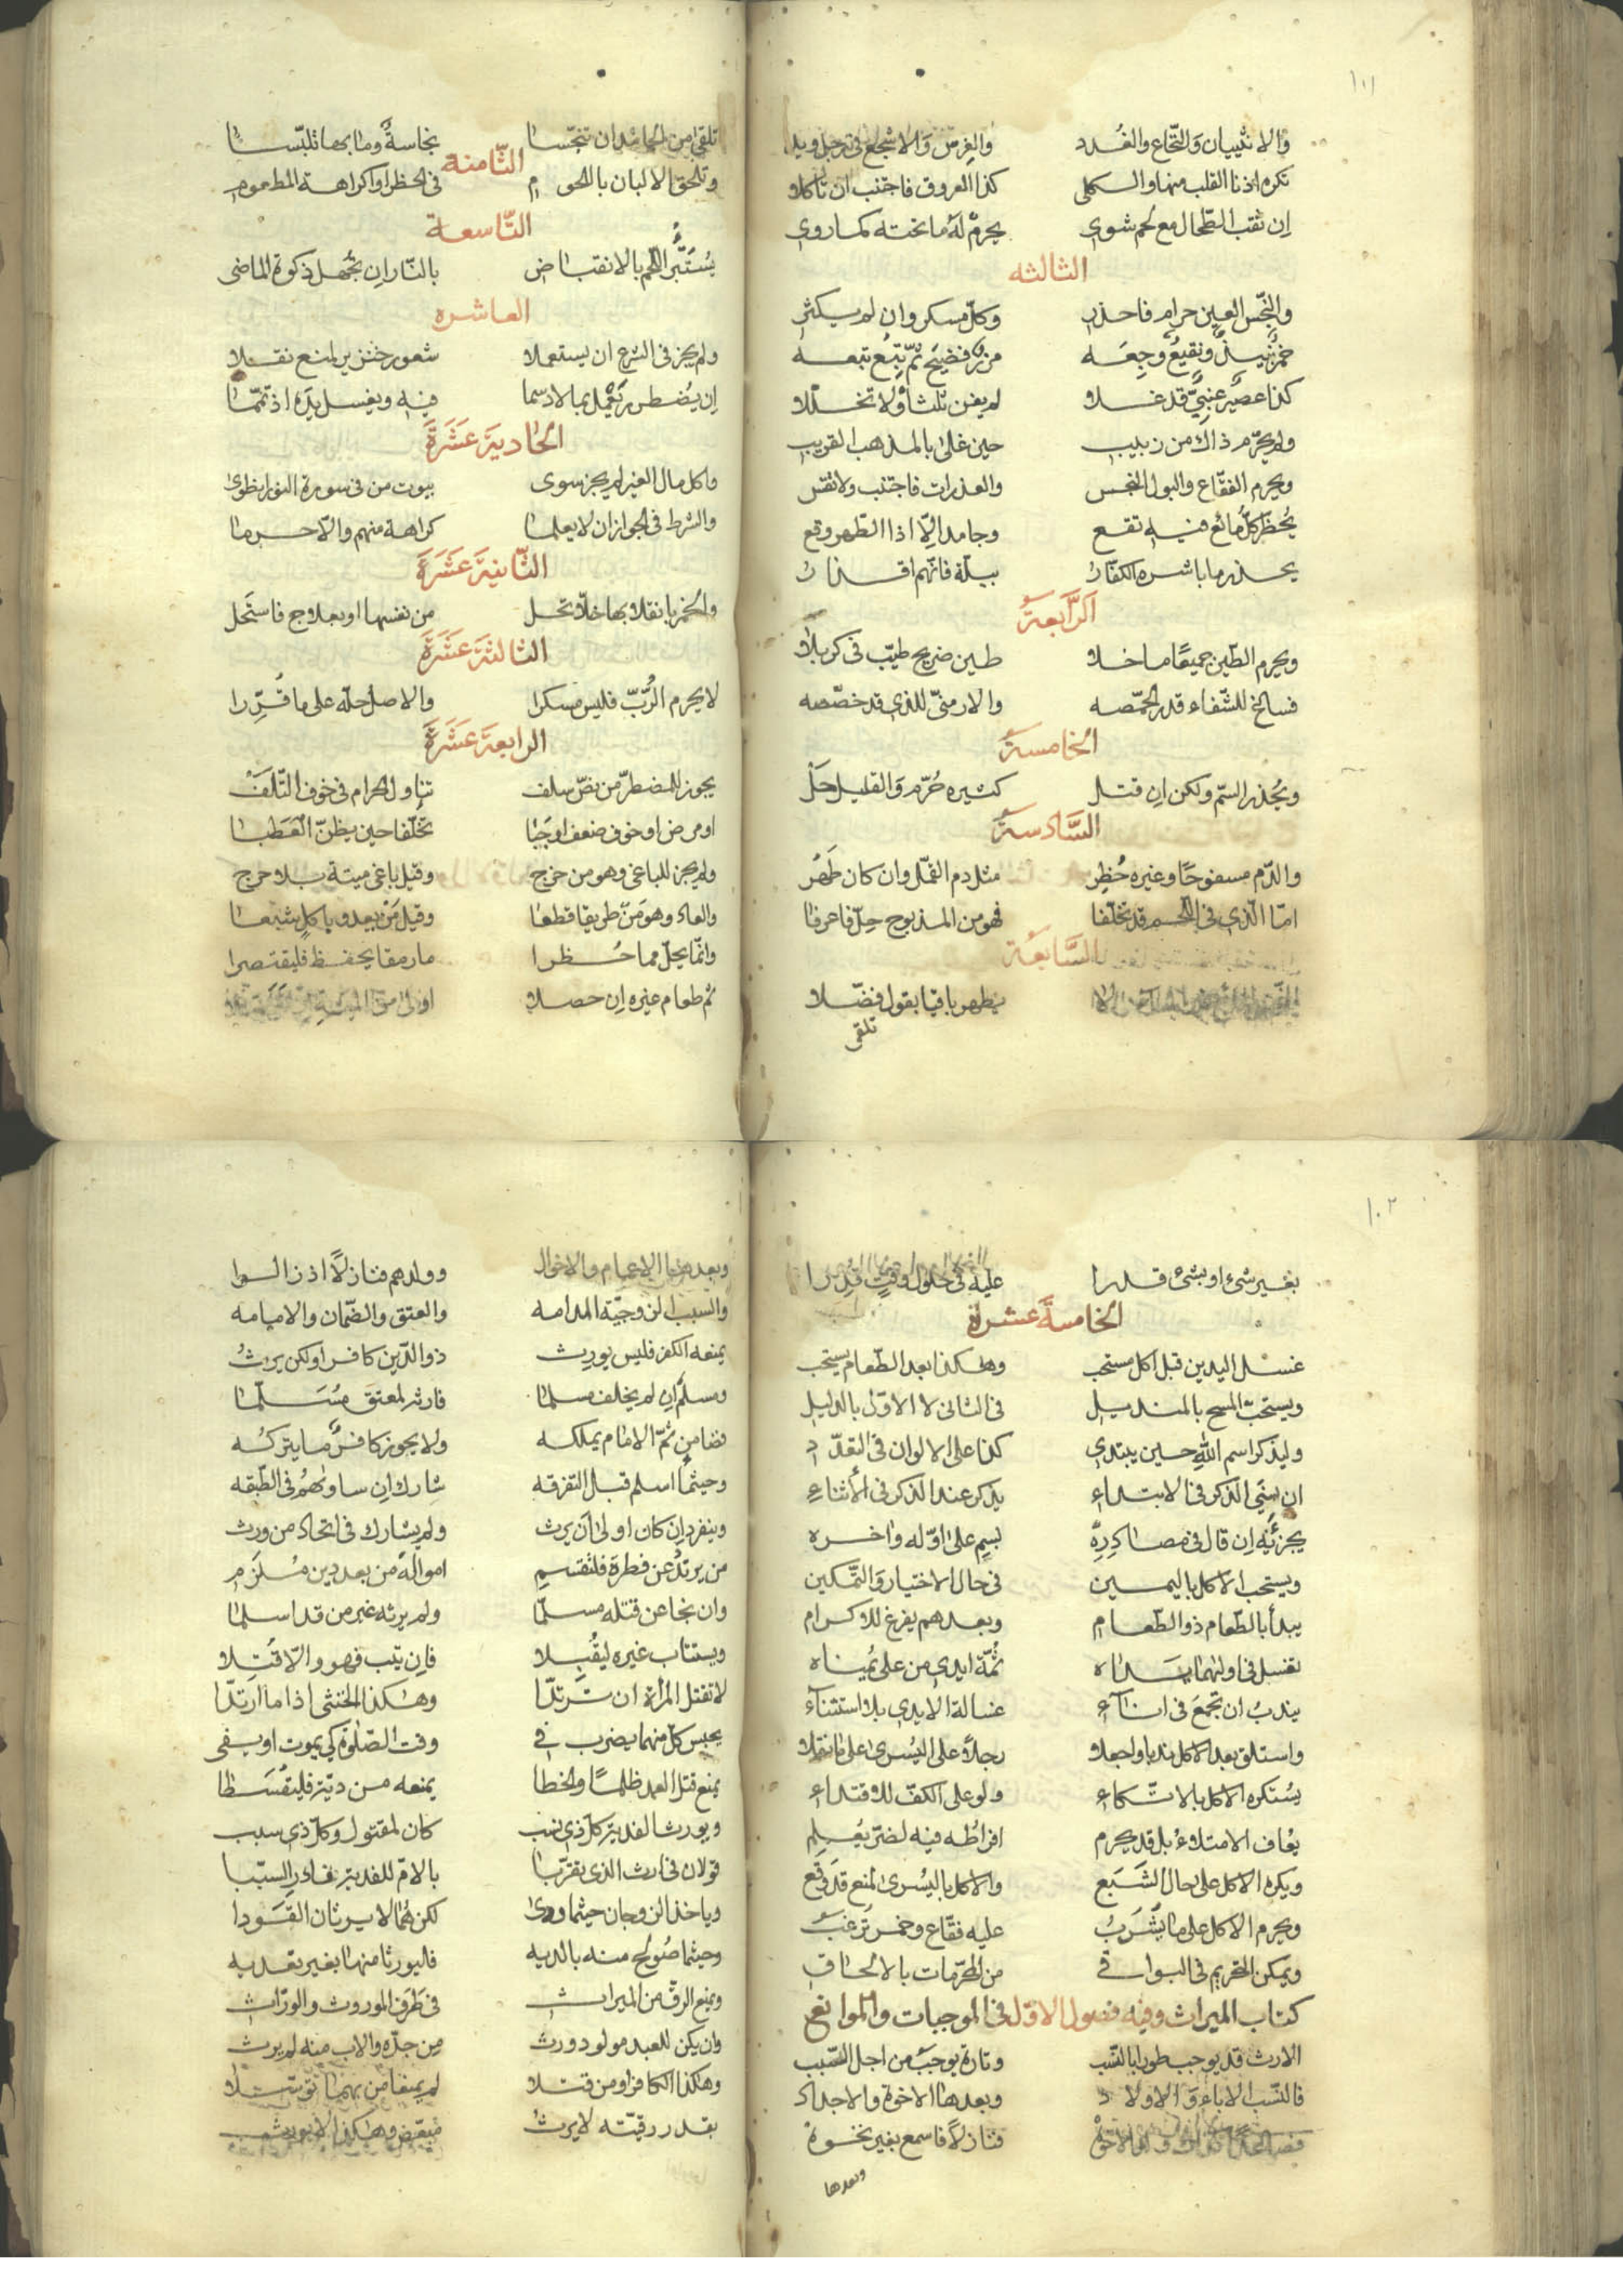 ١٠١
والانثييان والنخاع والغدد والفرث والاشجع في رجل ويد
تكره اذنا القلب منها والكلى كذا العروق فاجتنب ان تأكلا
إن ثقب الطحال مع لحم شوي يحرم له ما تحته كما روي
الثالثه
والنجس العين حرام فاحذر وكل مسكر وان لم يسكر
خمر نبيذ ونقيع وجعه مزر فضيخ ثم بتع تبعه
كذا عصير عنبي قد غلا لم يفن ثلثاه ولا تخللا
ولم يحرم ذاك من زبيب حين غلى بالمذهب القريب
ويحرم الفقاع والبول النجس والعذرات فاجتنب ولا تقس
يحظر كل مائع فيه تقع وجامد إلا اذا الطهر وقع
يحذر ما باشره الكفار ببلة فانهم اقذار
الرابعة
ويحرم الطين جميعا ما خلا طين ضريح طيب في كربلا
فسالخ للشفاء قدر الحمصه والارمني للذي قد خصصه
الخامسة
ويحذر السم ولكن ان قتل كثيره حرم والقليل حل
السادسة
والدم مسفوحا وغيره حظر مثل دم القمل وان كان طهر
اما الذي في اللحم قد تخلفا فهو من المذبوح حل فاعرفا
السابعة
يطهر باقيا بقول فضلا
تلقى
تلقى من الجامد ان تنجسا نجاسة وما بها تلبسا
الثامنة
وتلحق الالبان باللحوم في الحظر او كراهة المطعوم
التاسعة
يستبرأ اللحم بالانقباض بالنار إن تجهل ذكوة الماضي
العاشره
ولم يجز في الشرع ان يستعملا شعور خنزير لمنع نقلا
إن يضطر يعمل بما لا دسما فيه ويغسل يده اذ تمما
الحادية عشرة
واكل مال الغير لم يجز سوى بيوت من في سورة النور انطوى
والشرط في الجواز ان لا يعلما كراهة منهم والا حرما
الثانية عشرة
والخمر بانقلابها خلا تحل من نفسها او بعلاج فاستحل
الثالثة عشرة
لا يحرم الرب فليس مسكرا والاصل حله على ما قررا
الرابعة عشرة
يجوز للمضطر من نص سلف تناول الحرام في خوف التلف
او مرض او خوف ضعف اوجبا تخلفا حين يظن العطبا
ولم يجز للباغي وهو من خرج وقيل باغي ميتة بلا حرج
والعاد وهو من طريقا قطعا وقيل من يعدو باكل شبعا
وانما يحل مما حظرا ما رمقا يحفظ فليقتصرا
ثم طعام غيره إن حصلا اولى من الميتة
١٠٢
بغير شيء او بشيء قدرا عليه في حلول وقت قدرا
الخامسة عشرة
غسل اليدين قبل اكل مستحب وهكذا بعد الطعام يستحب
ويستحب المسح بالمنديل في الثاني لا الاول بالدليل
وليذكر اسم الله حين يبتدي كذا على الالوان في التعدد
ان نسي الذكر في الابتداء يذكر عند الذكر في الأثناء
يجزئه إن قال في مصادره بسم على اوله واخره
ويستحب الاكل باليمين في حال الاختيار والتمكين
يبدأ بالطعام ذو الطعام وبعدهم يفرغ للاكرام
تغسل في اولهما يداه ثمة ايدي من على يمناه
يندب ان تجمع في اناء غسالة الايدي بلا استثناء
واستلق بعد الاكل ندبا واجعلا رجلا على اليسرى على ما نقلا
يستكره الاكل بالاتكاء ولو على الكف للاقتداء
يعاف الامتلاء بل قد يحرم افراطه فيه لضر يعلم
ويكره الاكل على حال الشبع والاكل باليسرى لمنع قد وقع
ويحرم الاكل على ما يشرب عليه فقاع وخمر ترغب
ويمكن التحريم في البواقي من المحرمات بالالحاق
كتاب الميراث وفيه فصول الاول في الموجبات والموانع
الارث قد يوجب طورا بالنسب وتارة يوجب من اجل السبب
فالنسب الاباء والاولاد وبعدها الاخوة والاجداد
فنازلا فاسمع بغير نخوة
وبعدها
وبعدها الاعمام والاخوال وولدهم فنازلا اذ زالوا
والسبب الزوجية المدامه والعتق والضمان والامامه
يمنعه الكفر فليس يورث ذو الدين كافرا ولكن يرث
ومسلم ان لم يخلف مسلما فارثه لمعتق مسلما
فضامن ثم الامام يملكه ولا يحوز كافر ما يتركه
وحيثما اسلم قبل التفرقه شارك إن ساوهم في الطبقه
وينفرد ان كان اولى ان يرث ولم يشارك في اتحاد من ورث
من يرتد عن فطرة فلتقسم امواله من بعد دين ملزم
وان نجا عن قتله مسلما ولم يرثه غير من قد اسلما
ويستتاب غيره ليقبلا فان يتب فهو والا قتلا
لا تقتل المرأة ان ترتدا وهكذا الخنثى اذا ما ارتدا
يحبس كل منهما يضرب في وقت الصلوة كي يموت او يفي
يمنع قتل العمد ظلما والخطا يمنعه من دية فليقسطا
ويورث الفدية كل ذي نسب كان لمقتول وكل ذي سبب
قولان في ارث الذي تقربا بالام للفدية فادر السببا
وياخذ الزوجان حيثما ودى لكن هما لا يرثان القودا
وحيثما صولح منه بالديه فاليورثا منها بغير تعديه
ويمنع الرق من الميراث في طرف الموروث والوراث
وان يكن للعبد مولود ورث من جده والاب منه لم يرث
وهكذا الكافر او من قتلا لم يمنعا من بهما توسلا
بقدر رقيته لا يرث